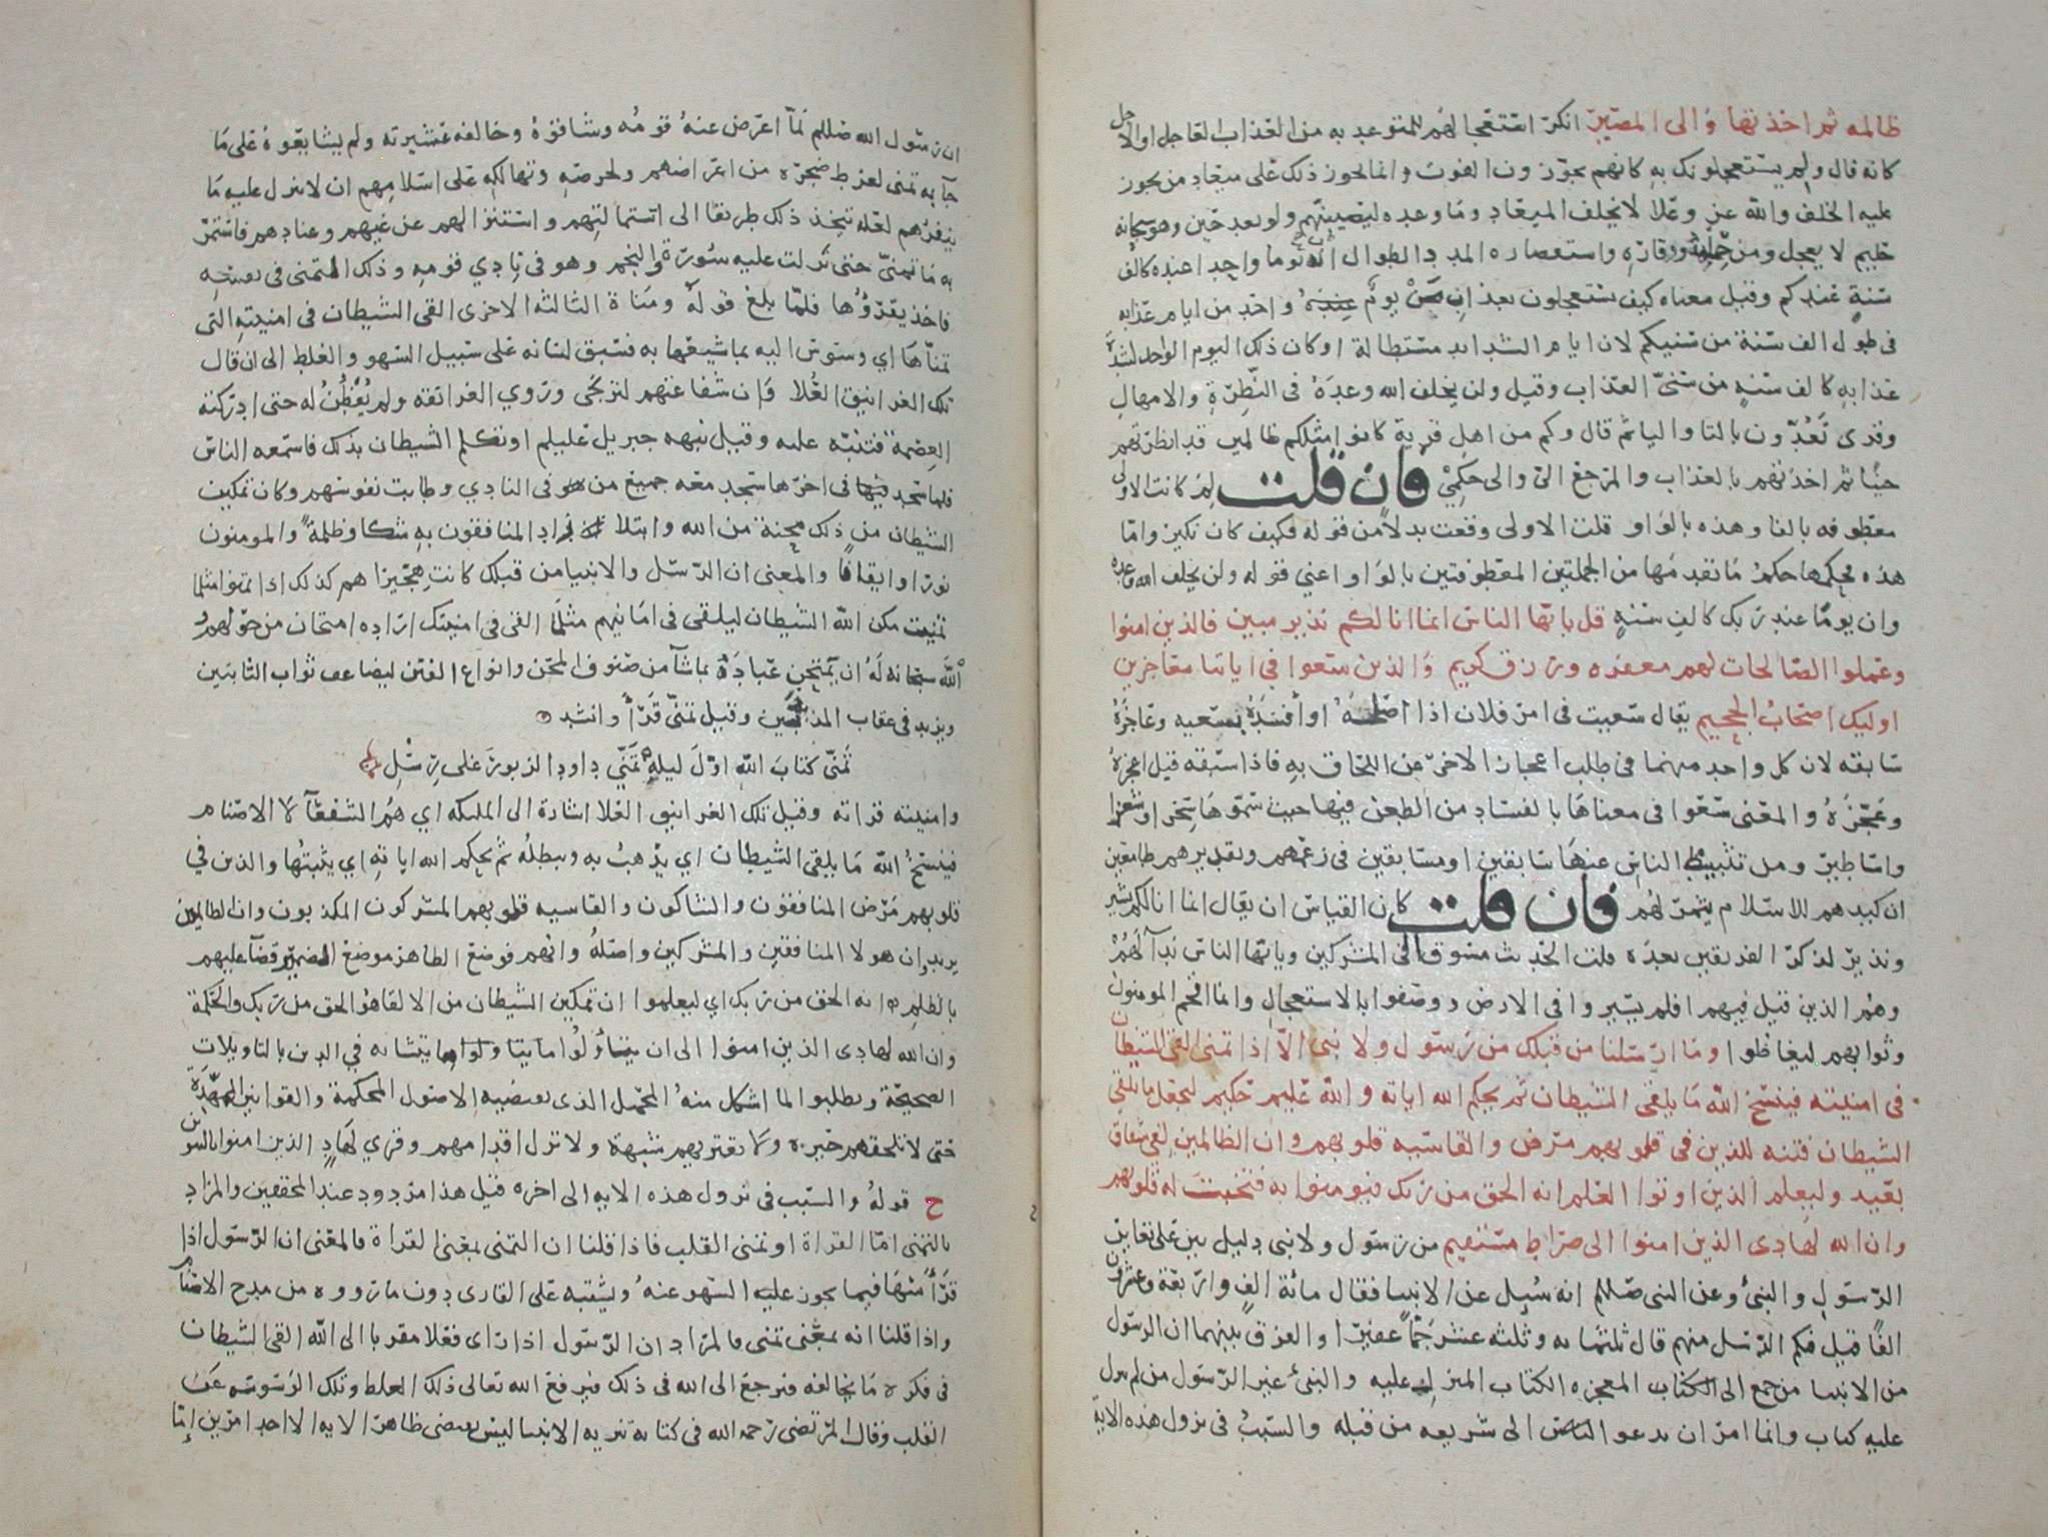 ظالمه ثم اخذتها والى المصير انكر استعجالهم للمتوعد به من العذاب العاجل او الاجل
كانه قال ولم يستعجلونك به كانهم يجوزون الفوت وانما يجوز ذلك على ميعاد من يجوز
عليه الخلف والله عز وعلا لا يخلف الميعاد وما وعده ليصيبنهم ولو بعد حين وهو سبحانه
حليم لا يعجل ومن حلمه ووقاره واستقصاره المدد الطوال ان يوما واحدا عنده كالف
سنة عندكم وقيل معناه كيف يستعجلون بعذاب من يوم واحد من ايام عذابه
في طول الف سنة من سنيكم لان ايام الشدايد مستطالة او كان ذلك اليوم الواحد لشدة
عذابه كالف سنه من سني العذاب وقيل ولن يخلف الله وعده في النظرة والامهال
وقرى تعدون بالتا واليا ثم قال وكم من اهل قرية كانوا مثلكم ظالمين قد انظرتهم
حينا ثم اخذتهم بالعذاب والمرجع الي والى حكمي فان قلت لم كانت الاولى
معطوفه بالفا وهذه بالواو قلت الاولى وقعت بدلا من قوله فكيف كان نكير واما
هذه فحكمها حكم ما تقدمها من الجملتين المعطوفتين بالواو اعني قوله ولن يخلف الله وعده
وان يوما عند ربك كالف سنة قل يايها الناس انما انا لكم نذير مبين فالذين امنوا
وعملوا الصالحات لهم مغفره ورزق كريم والذين سعوا في اياتنا معاجزين
اوليك اصحاب الجحيم يقال سعيت في امر فلان اذا اصلحه او افسده بسعيه وعاجزه
سابقه لان كل واحد منهما في طلب اعجاز الاخر عن اللحاق به فاذا سبقه قيل اعجزه
وعجزه والمعنى سعوا في معناها بالفساد من الطعن فيها حيث سموها سحرا وشعرا
واساطير ومن تثبيط الناس عنها سابقين او مسابقين في زعمهم وتقديرهم طامعين
ان كيدهم للاسلام يتم لهم فان قلت كان القياس ان يقال انما انا لكم بشير
ونذير لذكر الفريقين بعده قلت الحديث مسوق الى المشركين ويايها الناس ندا لهم
وهم الذين قيل فيهم افلم يسيروا في الارض ووصفوا بالاستعجال وانما اقحم المومنون
وثوابهم ليغاظوا وما ارسلنا من قبلك من رسول ولا نبي الا اذا تمنى القى الشيطان
في امنيته فينسخ الله ما يلقى الشيطان ثم يحكم الله اياته والله عليم حكيم ليجعل ما يلقي
الشيطان فتنه للذين في قلوبهم مرض والقاسيه قلوبهم وان الظالمين لفي شقاق
بعيد وليعلم الذين اوتوا العلم انه الحق من ربك فيومنوا به فتخبت له قلوبهم
وان الله لهادى الذين امنوا الى صراط مستقيم من رسول ولا نبي دليل بين على تغاير
الرسول والنبي وعن النبي صلعم انه سيل عن الانبيا فقال مائة الف واربعة وعشرون
الفا قيل فكم الرسل منهم قال ثلثمايه وثلثه عشر جما غفيرا والفرق بينهما ان الرسول
من الانبيا من جمع الى المعجزه الكتاب المنزل عليه والنبي غير الرسول من لم ينزل
عليه كتاب وانما امر ان يدعو الناس الى شريعه من قبله والسبب في نزول هذه الاية
ان رسول الله صللم لما اعرض عنه قومه وشاقوه وخالفه عشيرته ولم يشايعوه على ما
جآ به تمنى لفرط ضجره من اعراضهم ولحرصه وتهالكه على اسلامهم ان لا ينزل عليه ما
ينفرهم لعله يتخذ ذلك طريقا الى استمالتهم واستنزالهم عن غيهم وعنادهم فاستمر
به ما تمنى حتى نزلت عليه سورة والنجم وهو في نادي قومه وذلك التمنى في نفسه
فاخذ يقرؤها فلما بلغ قوله ومناة الثالثه الاخرى القى الشيطان في امنيته التي
تمناها اي وسوس اليه بما شيعها به فسبق لسانه على سبيل السهو والغلط الى ان قال
تلك الغرانيق العلا وان شفاعتهم لترتجى وروي الغرانقه ولم يفطن له حتى ادركته
العصمة فتنبه عليه وقيل نبهه جبريل عليلم او تكلم الشيطان بذلك فاسمعه الناس
فلما سجد في اخرها سجد معه جميع من في النادي وطابت نفوسهم وكان تمكين
الشيطان من ذلك محنة من الله وابتلا زاد المنافقون به شكا وظلمة والمومنون
نورا وايقانا والمعنى ان الرسل والانبيا من قبلك كانت هجيراهم كذلك اذا تمنوا مثل ما
تمنيت مكن الله الشيطان ليلقى في امانيهم مثل ما القى في امنيتك ارادة امتحان من حولهم
الله سبحانه له ان يمتحن عباده بما شآ من صنوف المحن وانواع الفتن ليضاعف ثواب الثابتين
ويزيد في عقاب المذبذبين وقيل تمنى قرأ وانشد
تمنى كتاب الله اول ليله تمني داود الزبور على رسل
وامنيته قراته وقيل تلك الغرانيق العلا اشارة الى المليكه اي هم الشفعآ لا الاصنام
فينسخ الله ما يلقى الشيطان اي يذهب به ويبطله ثم يحكم الله اياته اي يثبتها والذين في
قلوبهم مرض المنافقون والشاكون والقاسيه قلوبهم المشركون المكذبون وان الظالمين
يريد وان هولا المنافقين والمشركين واصله وانهم فوضع الظاهر موضع الضمير قضآ عليهم
بالظلم انه الحق من ربك اي ليعلموا ان تمكين الشيطان من الالقا هو الحق من ربك والحكمة
وان الله لهادى الذين امنوا الى ان يتاولوا ما يتشابه في الدين بالتاويلات
الصحيحة ويطلبوا لما اشكل منه المحمل الذى يقتضيه الاصول المحكمة والقوانين الممهدة
حتى لا تلحقهم حيره ولا تعتريهم شبهة ولا تزل اقدامهم وقري لهاد الذين امنوا بالتنوين
ح قوله والسبب في نزول هذه الايه الى اخره قيل هذا مردود عند المحققين والمراد
بالتمنى اما القراة او تمنى القلب فاذا قلنا ان التمنى بمعنى القراة فالمعنى ان الرسول اذا
قرأ سها فيما يجوز عليه السهو عنه ويشتبه على القارى دون ما رووه من مدح الاصنام
واذا قلنا انه بمعنى تمنى فالمراد ان الرسول اذا راى فعلا مقربا الى الله القى الشيطان
في فكره ما يخالفه فيرجع الى الله في ذلك فيرفع الله تعالى ذلك الغلط وتلك الوسوسه عن
القلب وقال المرتضى رحمه الله في كتابه تنزيه الانبيا ليس يقتضى ظاهر الايه الا احد امرين اما